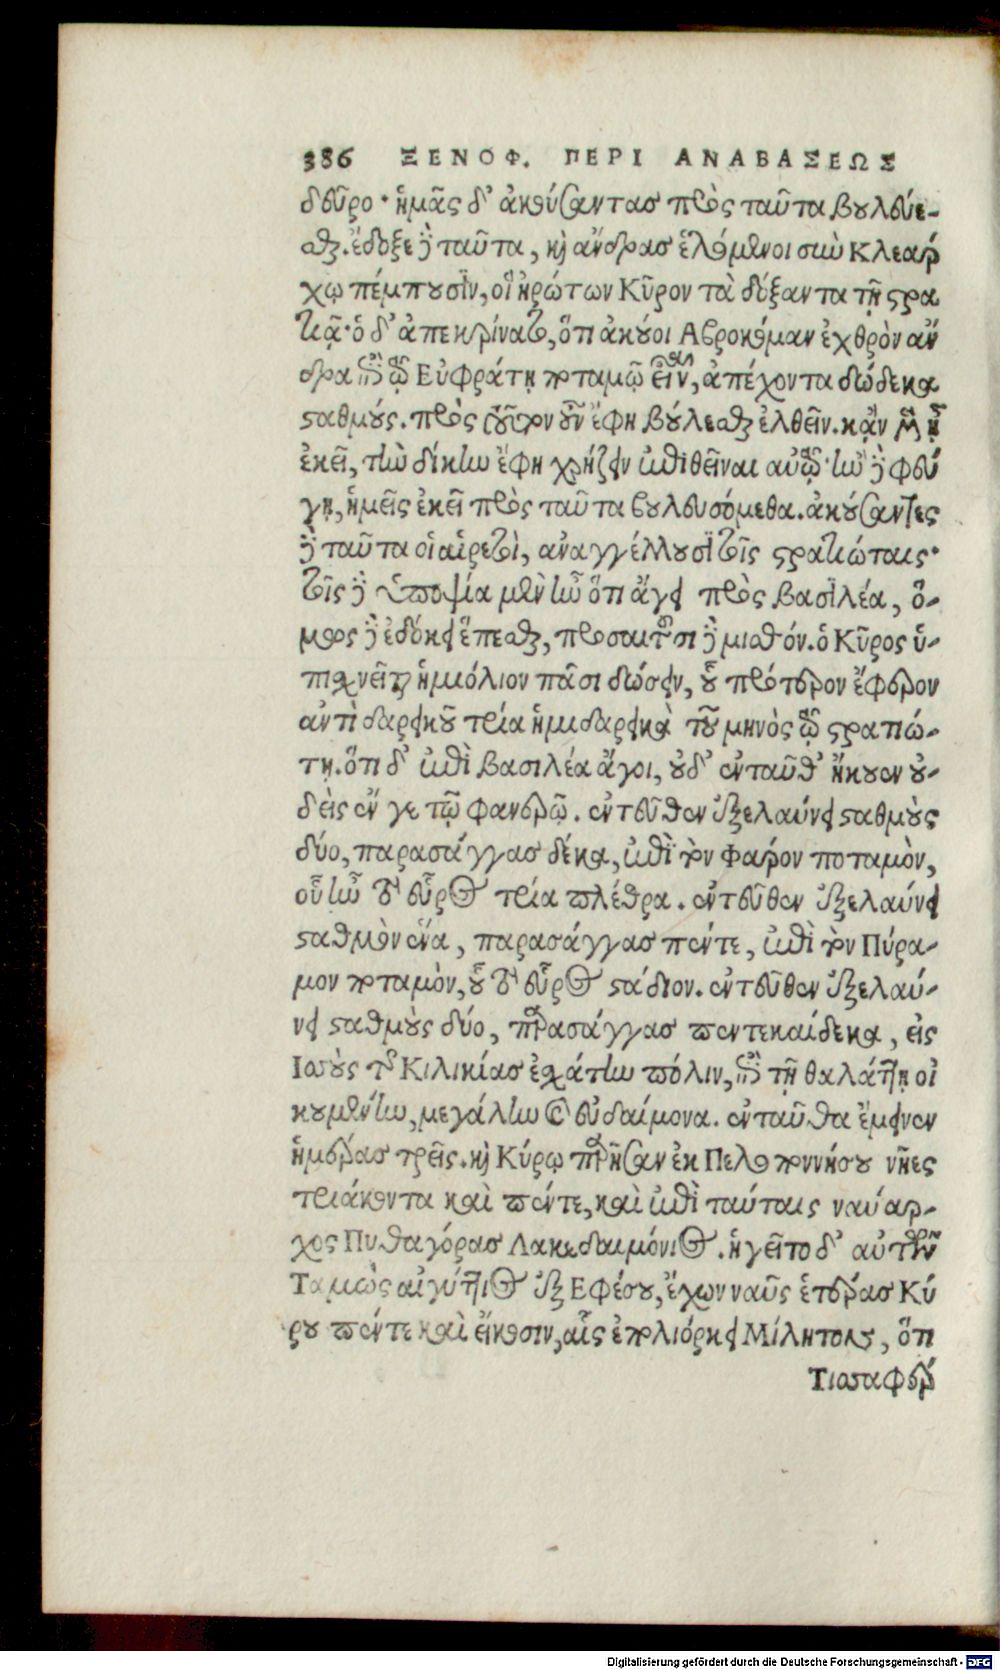 386 ΞΕΝΟΦ. ΠΕΡΙ ΑΝΑΒΑΣΕΩΣ
δεῦρο· ἡμᾶς δ' ἀκούσαντας πρὸς ταῦτα βουλεύε-
σθαι. ἔδοξε δὲ ταῦτα, καὶ ἄνδρας ἑλόμενοι σὺν Κλεάρ
χῳ πέμπουσιν, οἳ ἠρώτων Κῦρον τὰ δόξαντα τῇ στρα
τιᾷ· ὁ δ' ἀπεκρίνατο, ὅτι ἀκούοι Αβροκόμαν ἐχθρὸν ἄν
δρα ἐπὶ τῷ Εὐφράτῃ ποταμῷ εἶναι, ἀπέχοντα δώδεκα
σταθμούς. πρὸς τοῦτον οὖν ἔφη βούλεσθαι ἐλθεῖν. κἂν μὲν ᾖ
ἐκεῖ, τὴν δίκην ἔφη χρῄζειν ἐπιθεῖναι αὐτῷ· ἢν δὲ φεύ
γῃ, ἡμεῖς ἐκεῖ πρὸς ταῦτα βουλευσόμεθα. ἀκούσαντες
δὲ ταῦτα οἱ αἱρετοὶ, αναγγέλλουσι τοῖς στρατιώταις·
τοῖς δὲ ὑποψία μὲν ἦν ὅτι ἄγει πρὸς βασιλέα, ὅ-
μως δὲ ἐδόκει ἕπεσθαι, προσαιτοῦσι δὲ μισθόν. ὁ Κῦρος ὑ-
πισχνεῖται ἡμιόλιον πᾶσι δώσειν, οὗ πρότερον ἔφερον
αντὶ δαρεικοῦ τρία ἡμιδαρεικὰ τοῦ μηνὸς τῷ στρατιώ-
τῃ. ὅτι δ' ἐπὶ βασιλέα ἄγοι, οὐδ' ἐνταῦθ' ἤκουεν οὐ-
δεὶς ἔν γε τῷ φανερῷ. ἐντεῦθεν ἐξελαύνει σταθμοὺς
δύο, παρασάγγας δέκα, ἐπὶ τὸν Φάρον ποταμὸν,
οὗ ἦν τὸ εὖρος τρία πλέθρα. ἐντεῦθεν ἐξελαύνει
σταθμὸν ἕνα, παρασάγγας πέντε, ἐπὶ τὸν Πύρα-
μον ποταμὸν, οὗ τὸ εὖρος στάδιον. ἐντεῦθεν ἐξελαύ-
νει σταθμοὺς δύο, παρασάγγας πεντεκαίδεκα, εἰς
Ισσοὺς τῆς Κιλικίας ἐσχάτην πόλιν, ἐπὶ τῇ θαλάττῃ οἰ
κουμένην, μεγάλην καὶ εὐδαίμονα. ἐνταῦθα ἔμειναν
ἡμέρας τρεῖς. καὶ Κύρῳ παρῆσαν ἐκ Πελοποννήσου νῆες
τριάκοντα καὶ πέντε, καὶ ἐπὶ ταύταις ναύαρ-
χος Πυθαγόρας Λακεδαιμόνιος. ἡγεῖτο δ' αὐτῶν
Ταμὼς αἰγύπτιος ἐξ Εφέσου, ἔχων ναῦς ἑτέρας Κύ
ρου πέντε καὶ εἴκοσιν, αἷς ἐπολιόρκει Μίλητον, ὅτι
Τισσαφέρ
Digitalisierung gefördert durch die Deutsche Forschungsgemeinschaft - DFG